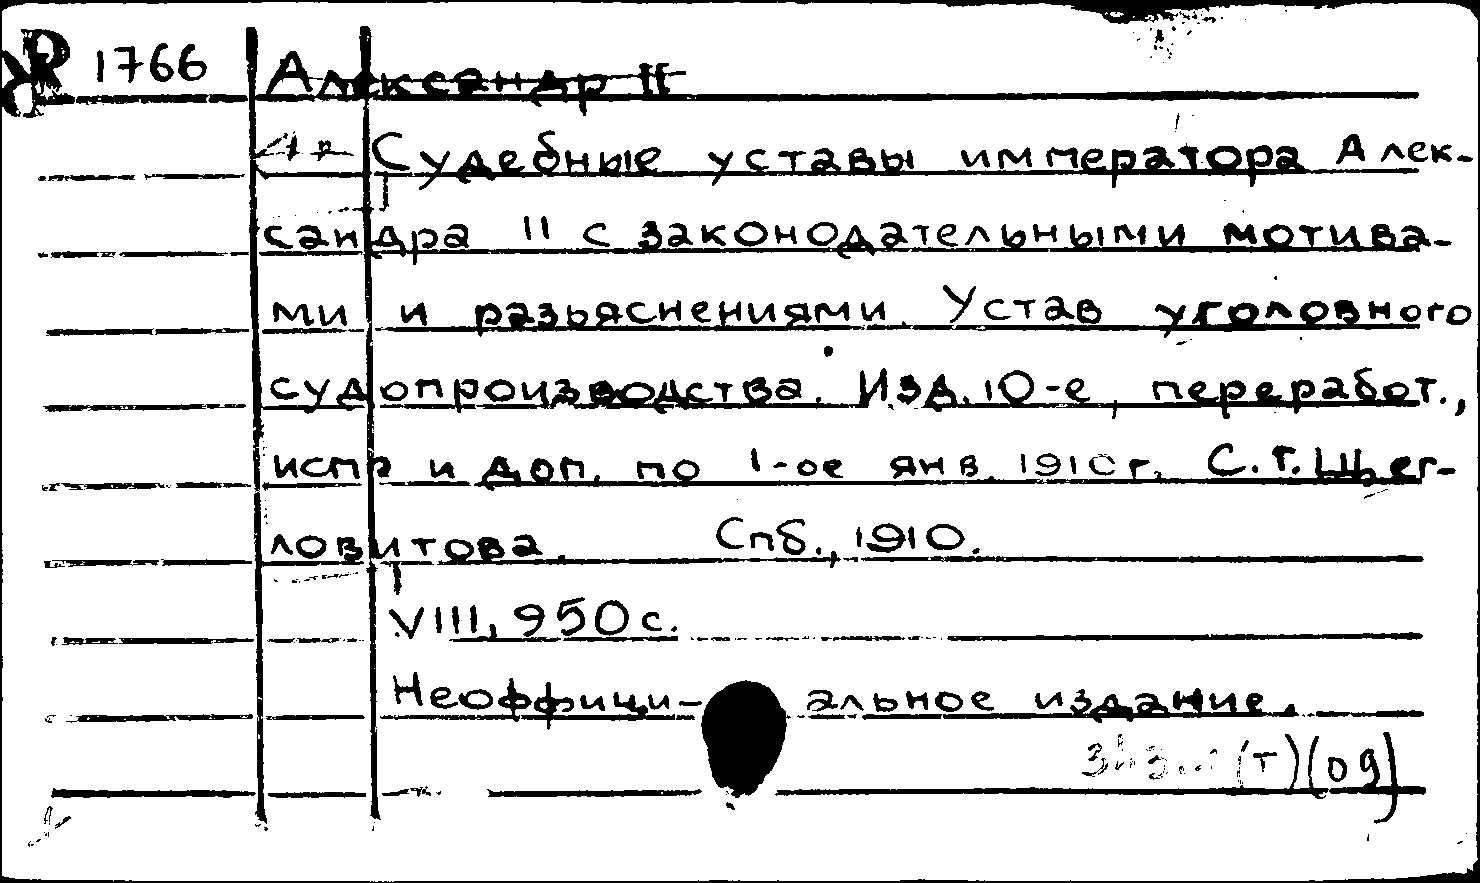 1766 Александр II
Судебные уставы императора Алек-
сандра II с законодательными мотива-
ми и разьяснениями. Устав уголовного
судопроизводства. Изд. 10-е, переработ.,
испр и доп. по 1-ое янв. 1910 г. С.Г. Щег-
ловитова. Спб., 1910.
VIII, 950 с.
Неоффици- альное издание.
(т)(09)